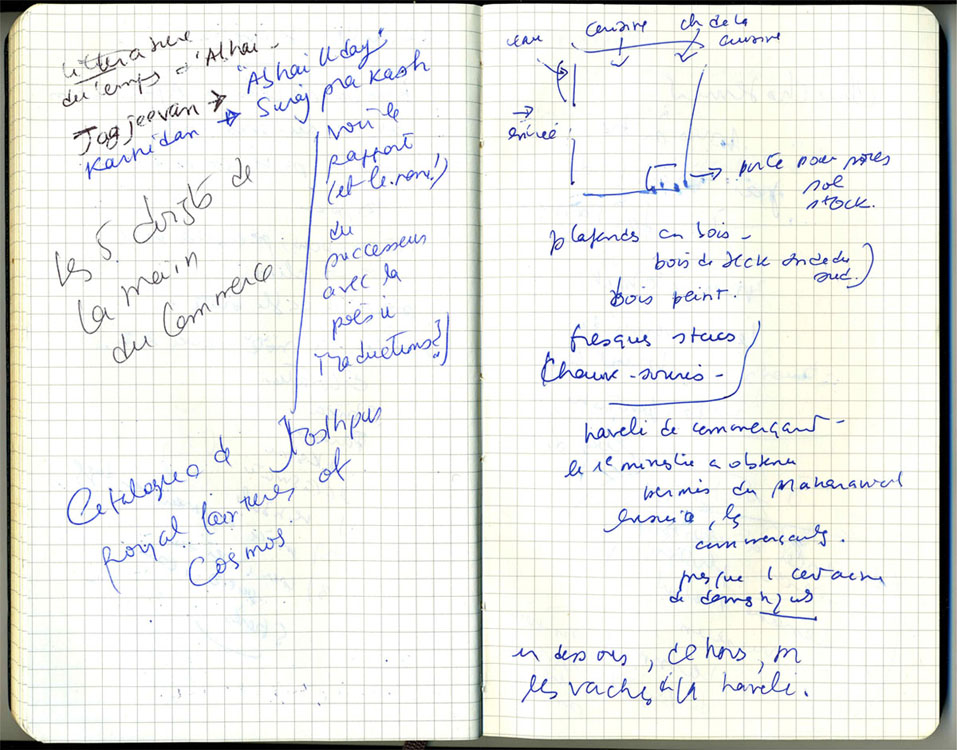 Litterature
du temps d'Abhai -
Jagjeevan → "Abhai Uday"
Karnidan → Suraj prakash
voir le
rapport
(et le nom!)
du
successeur
avec la
poésie
Traductions?
les 5 doigts de
la main
du Commerce
Catalogue de Jodhpur
royal paintures of
Cosmos.
eau
cuisine
ch de la
cuisine
entrée
porte pour
sol
stock.
plafonds en bois -
bois de teck
sud.)
bois peint.
fresques stucs
Chauve-souris -
haveli de commerçant -
le 1e ministre a obtenu
permis du Maharawal
ensuite, les
commerçants.
presque 1 centaine
de domestiques
en dessous, dehors, on
les vaches à la haveli.